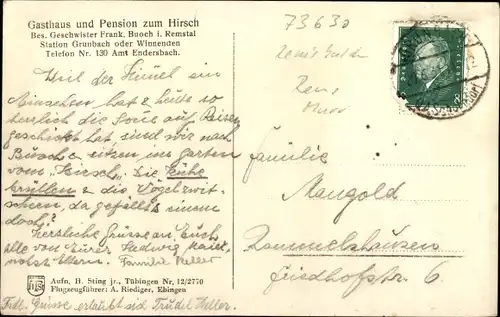 Gasthaus und Pension zum Hirsch
Bes. Geschwister Frank, Buoch i. Remstal
Station Grunbach oder Winnenden
Telefon Nr. 130 Amt Endersbach.
73630
Weil der Himmel ein
Einsehen hat & heute so
herrlich die Sonne auf Reisen
geschickt hat, sind wir nach
Buoch & sitzen im Garten
vom "Hirsch". Die Kühe
brüllen & die Vögel zwit-
schern, da gefällt's einem
doch!
Herzliche Grüsse an Euch
alle von Eurer Hedwig
nebst Eltern. Familie Keller
Familie
Mangold
Rommelshausen
Friedhofstr. 6.
Aufn. H. Sting jr., Tübingen Nr. 12/2770
Flugzeugführer: A. Riediger, Ebingen
Frdl. Grüsse erlaubt sich Trudel Keller.